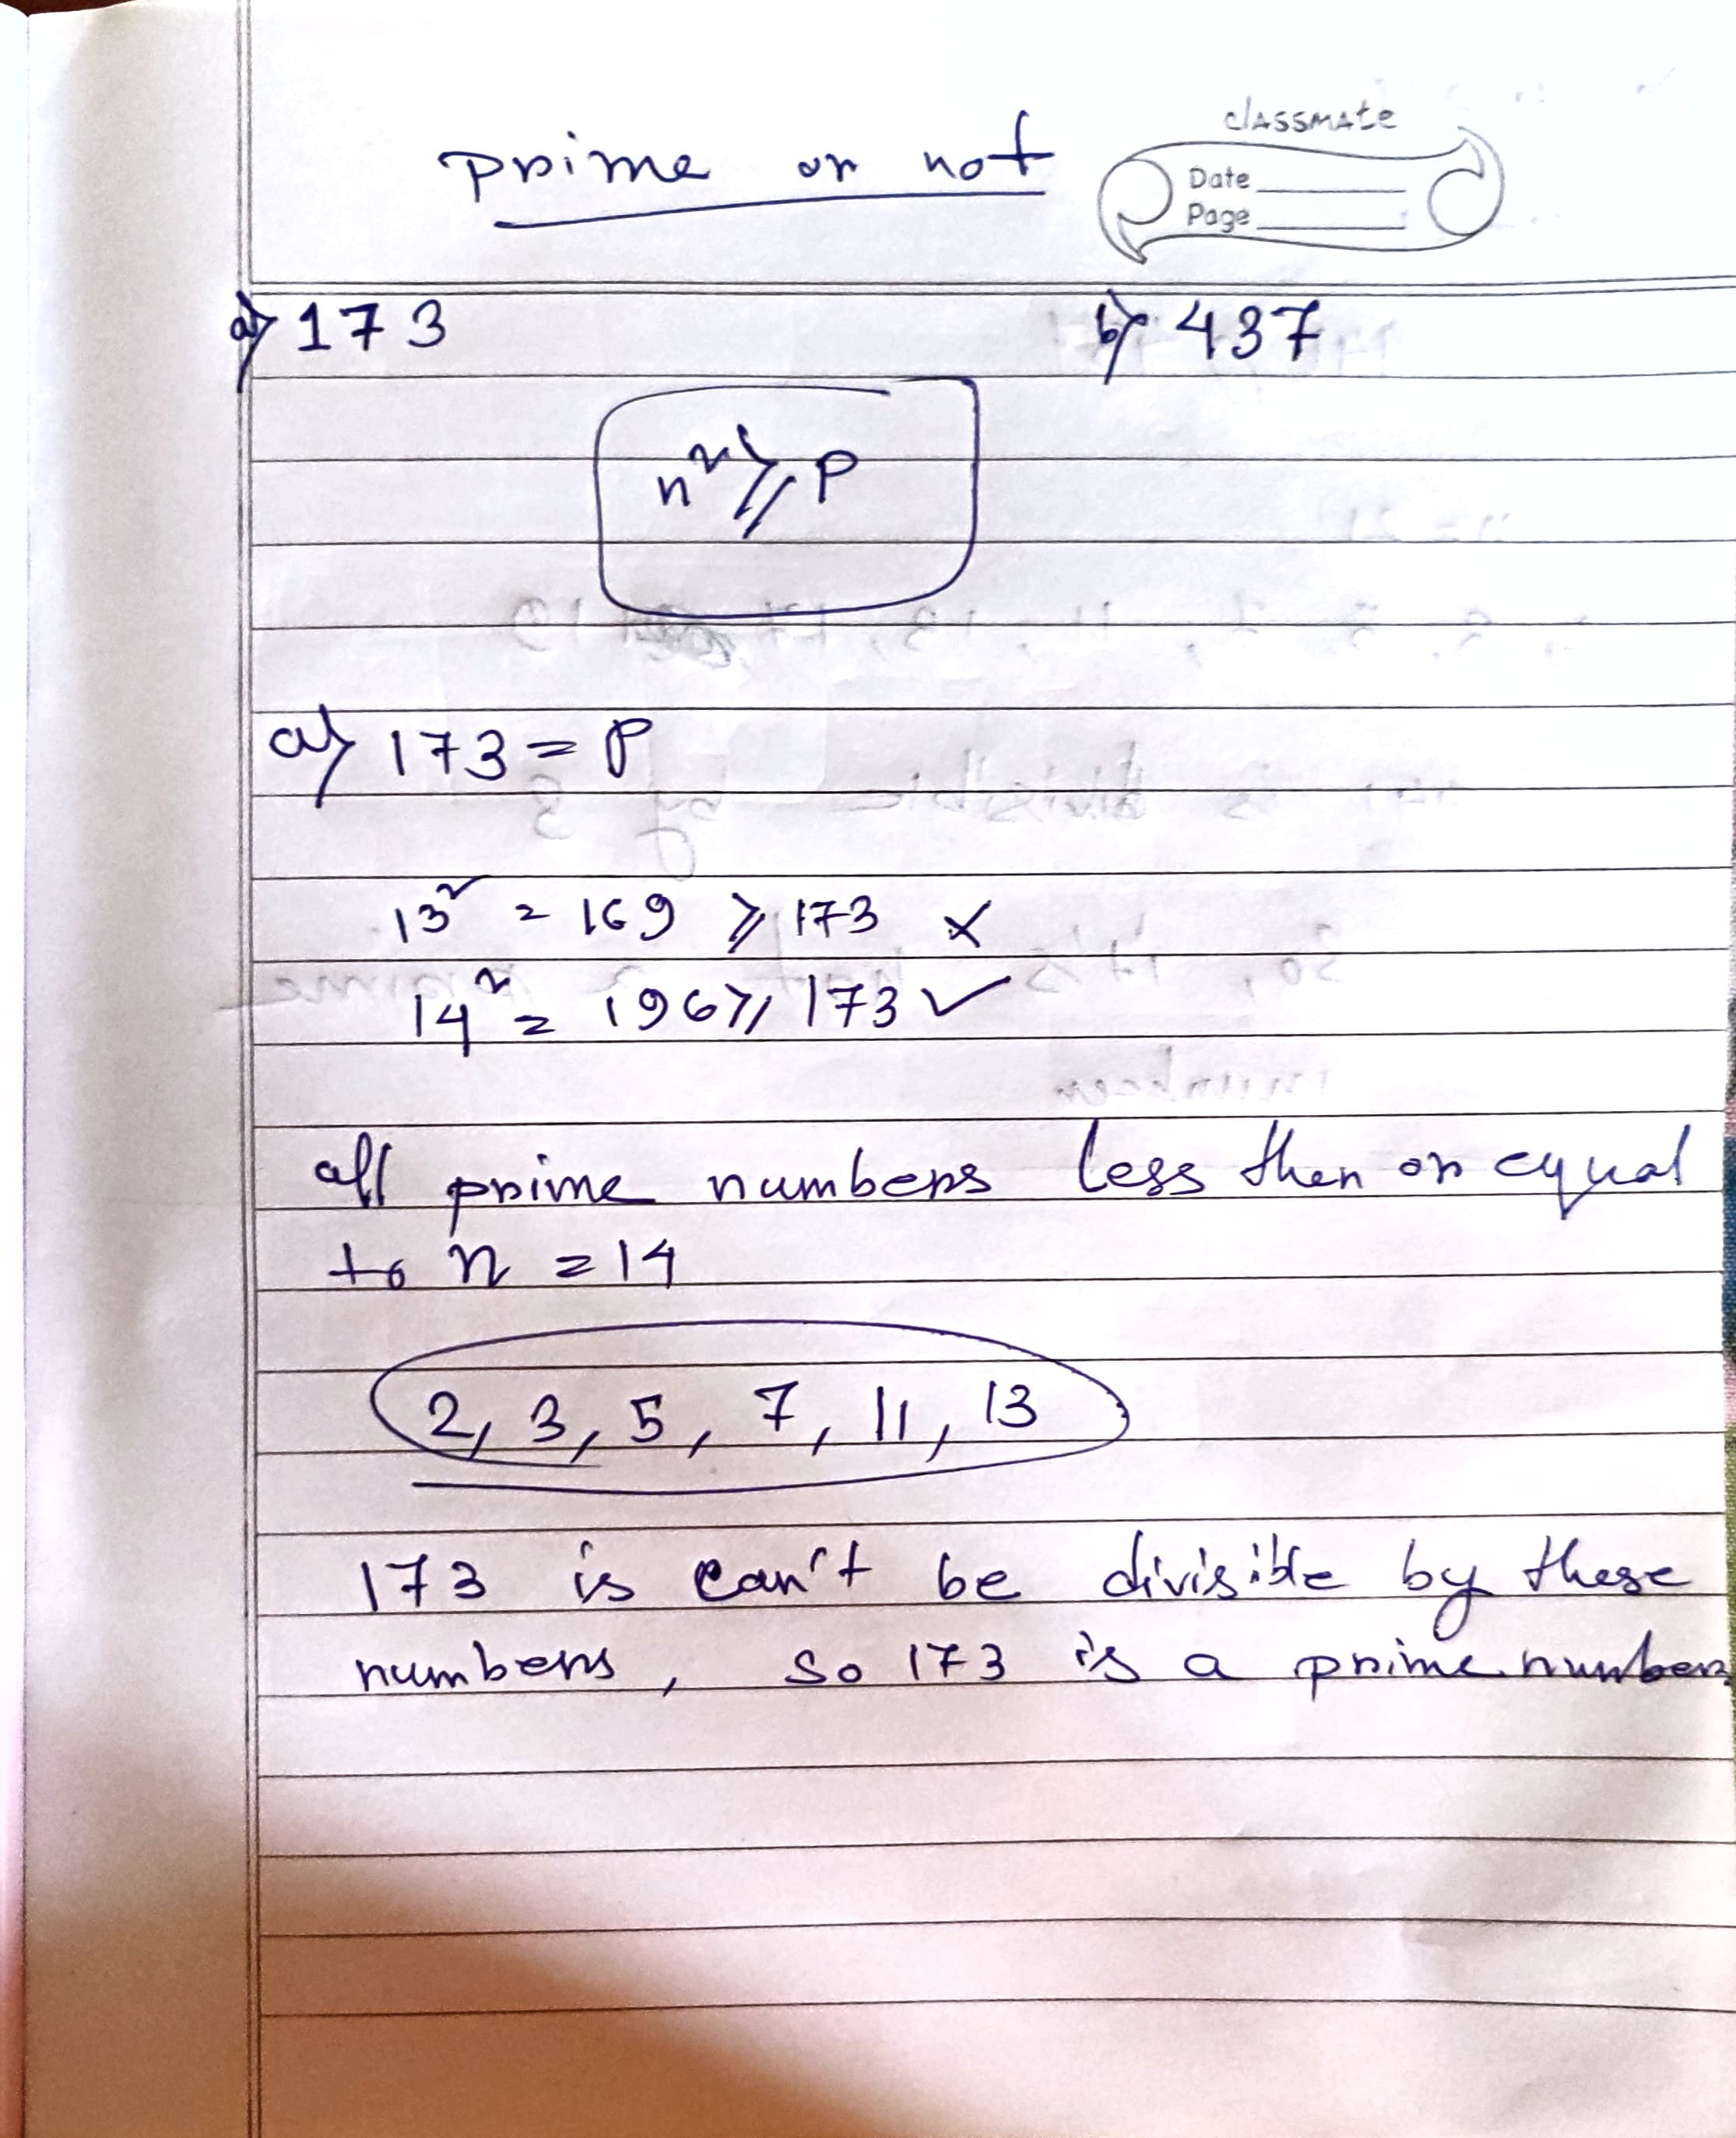 prime or not
classmate
Date
Page
a) 173 b) 437
n² ⩾ P
a) 173 = P
13² = 169 ⩾ 173 ×
14² = 196 ⩾ 173 ✓
all prime numbers less then or equal
to n = 14
2, 3, 5, 7, 11, 13
173 is can't be divisible by these
numbers, so 173 is a prime number